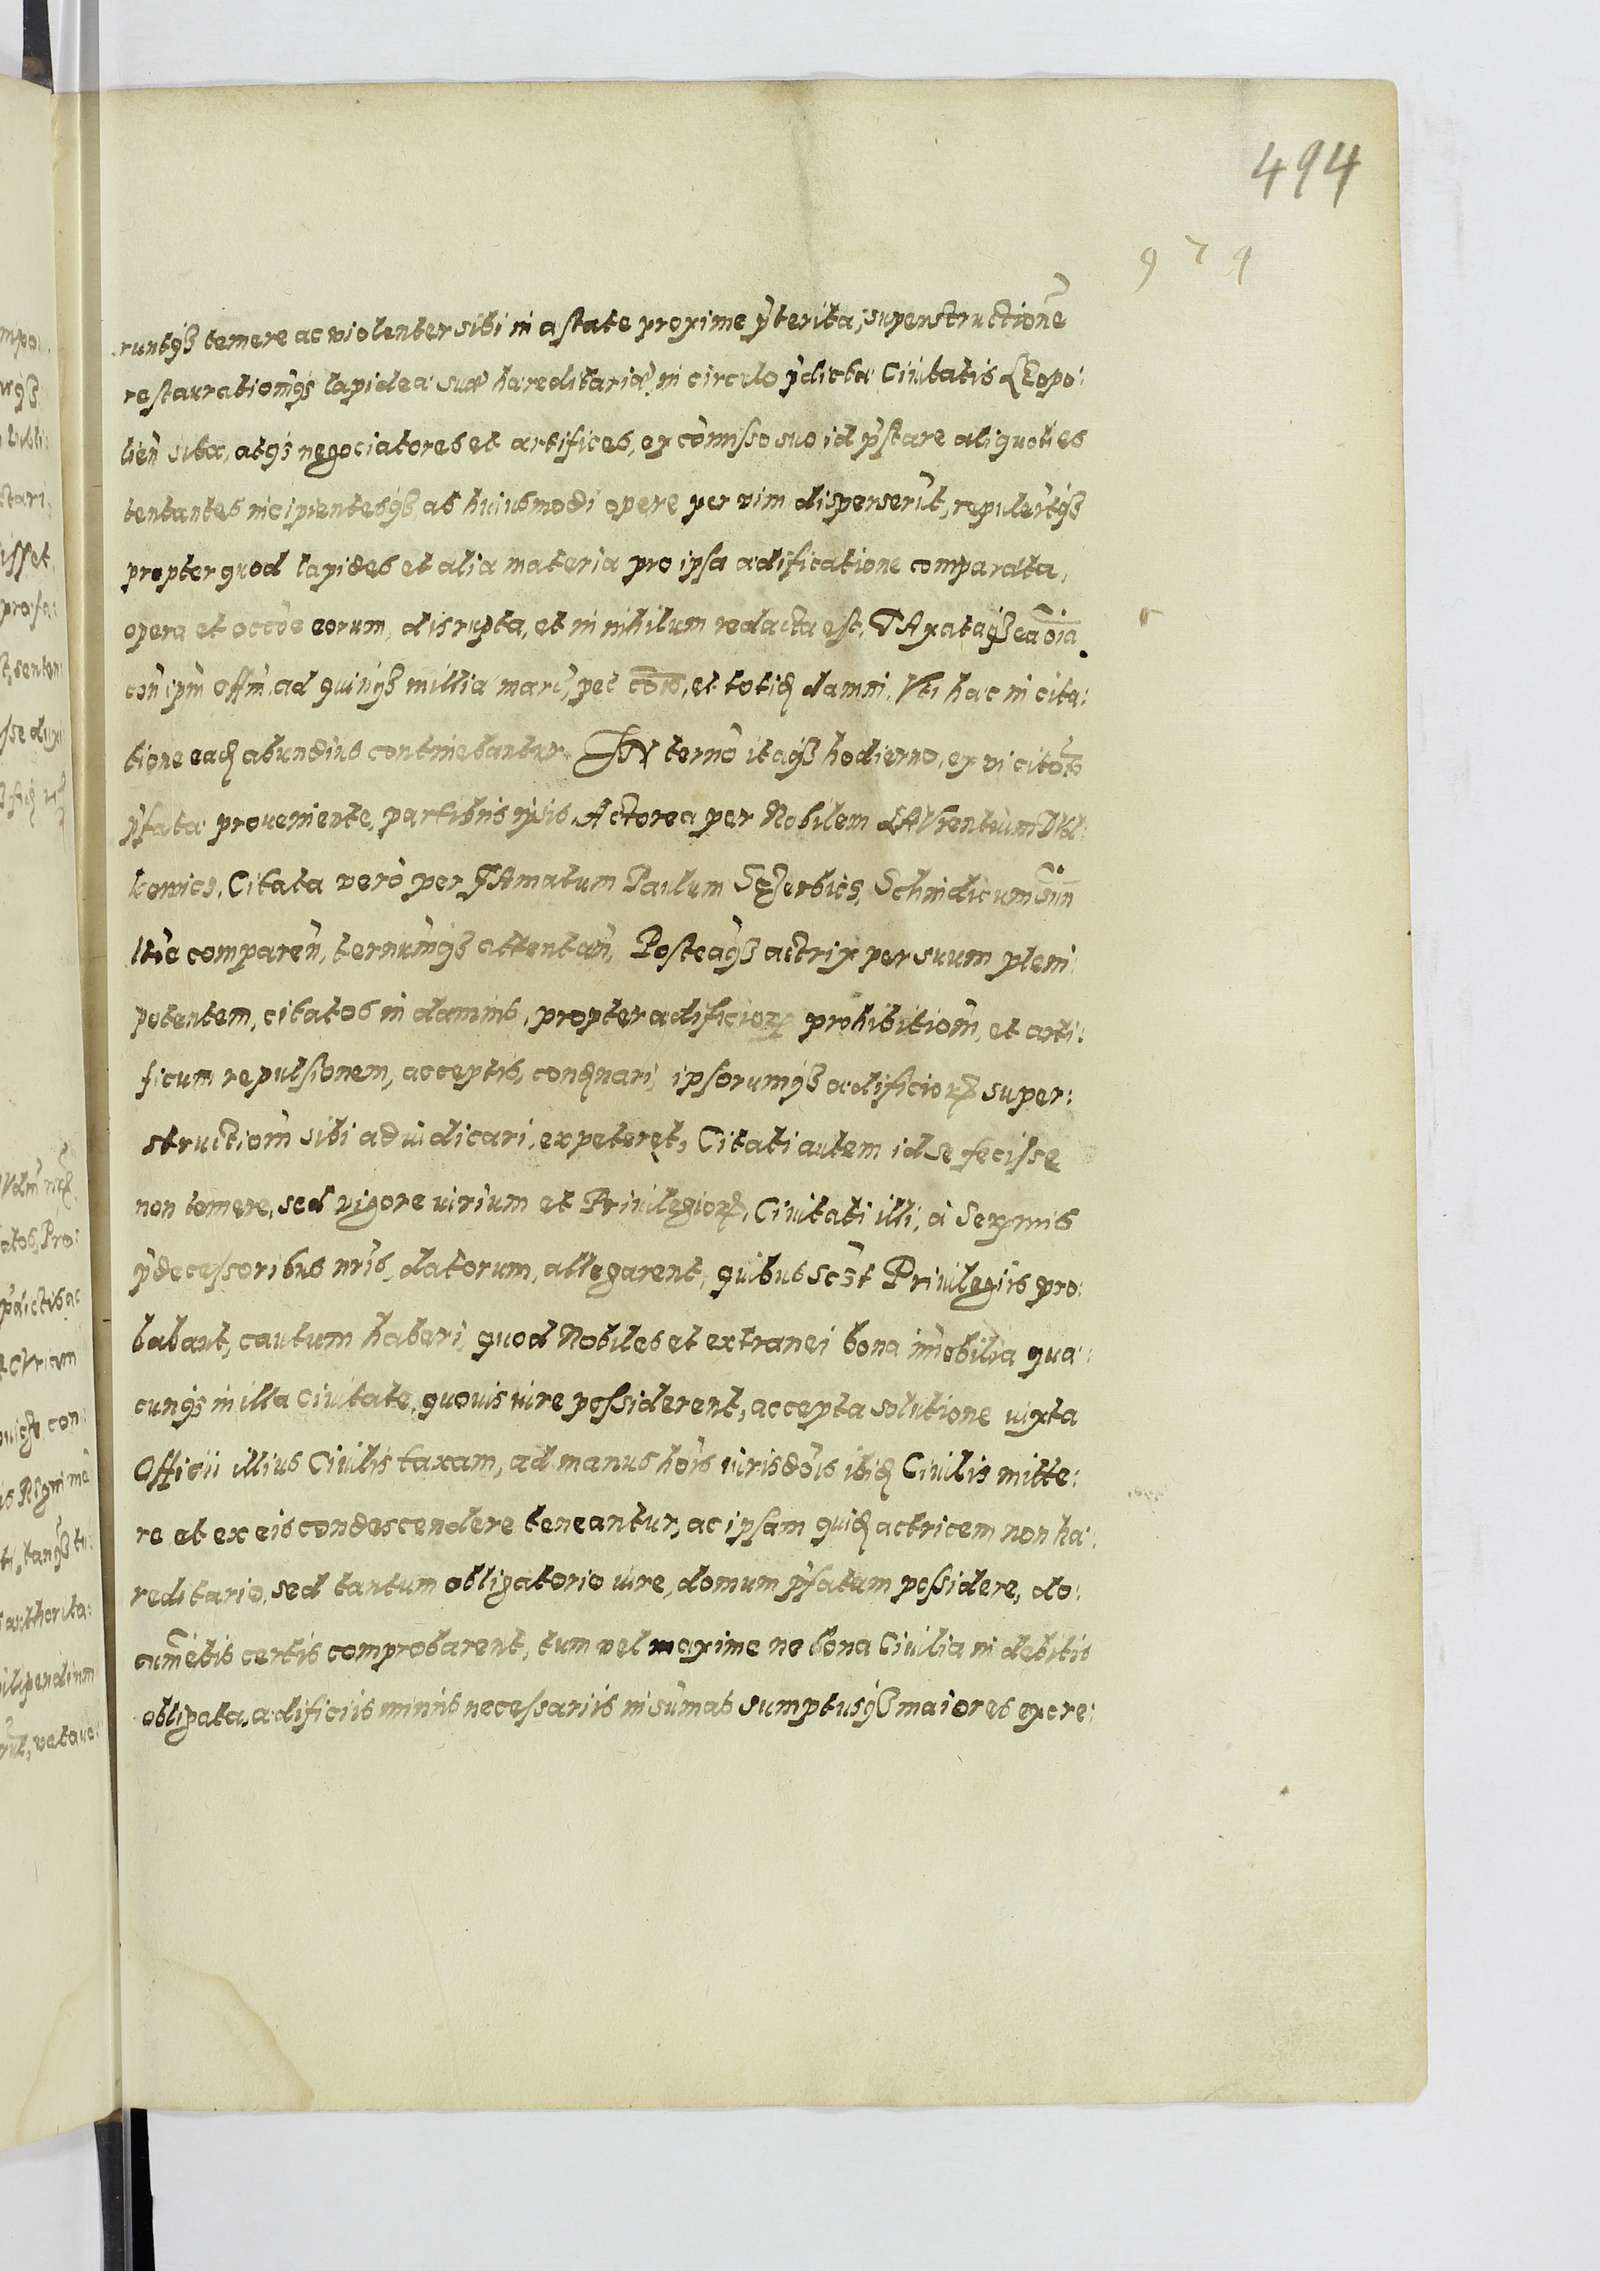 494
979
runtq3 temere ac violenter sibi in æstate proxime p̃terita, superstructionẽ
restaurationẽq3 lapideæ suæ hæreditariæ, in circulo p̃dictæ Ciuitatis LEopo:
lien̄ sitæ, atq3 negociatores et artifices, ex com̃isso suo id p̃stare aliquoties
tentantes incipientesq3, ab huiusmodi opere per vim disperserũt, repulerũtq3
propter quod lapides et alia materia pro ipsa ædificatione comparata,
opera et occõe eorum, disrupta, et in nihilum redacta est, TAxataq3 ea õia
con̄ ipm̃ offm̃, ad quinq3 millia marc̃, pec̃ com̃, et totid̃ damni. Vti hæc in cita:
tione ead̃ abundius continebantur. IN termõ itaq3 hodierno, ex vi citõis
p̃fatæ proueniente, partibus ip̃is, Actorea per Nobilem LAVrentium
kowicz, Citata vero per FAmatum Paulum Sczerbicz, Schindicum suũ
ltĩe comparen̄, termumq3 attentan̄, Posteaq3 actrix per suum pleni
potentem, citatos in damnis, propter ædificior̃ prohibitiom̃, et arti:
ficum repulsionem, acceptis, cond̃nari, ipsorumq3 ædificior̃ super:
structiom̃ sibi adiudicari, expeteret, Citati autem id se fecisse
non temere, sed vigore iurium et Priuilegior̃, Ciuitati illi, à Serx̃mis
p̃decessoribus nr̃is, datorum, allegarent, quibus sc̃3t Priuilegiis pro:
babant, cautum haberi, quod Nobiles et extranei bona im̃obilia quæ:
cunq3 in illa Ciuitate, quouis iure possiderent, accepta solutione iuxta
Officii illius Ciuilis taxam, ad manus hõis iurisdõis ibid̃ Ciuilis mitte:
re et ex eis condescendere teneantur, ac ipsam quid̃ actricem non hæ:
reditario, sed tantum obligatorio iure, domum p̃fatam possidere, do:
cumẽtis certis comprobarent, tum vel maxime ne bona Ciuilia in debitis
obligata, ædificiis minus necessariis in sum̃as sumptusq3 maiores excre: